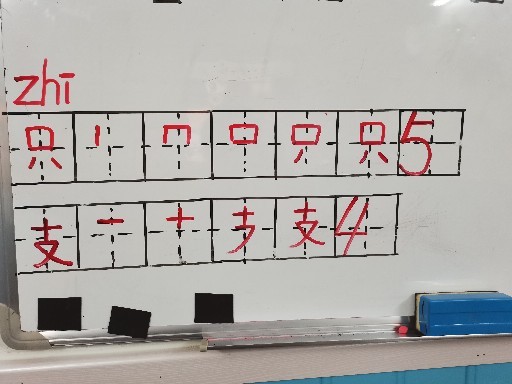 zhī
只 丨 冂 口 𠮛 只 5
支 一 十 ㇇ 支 4